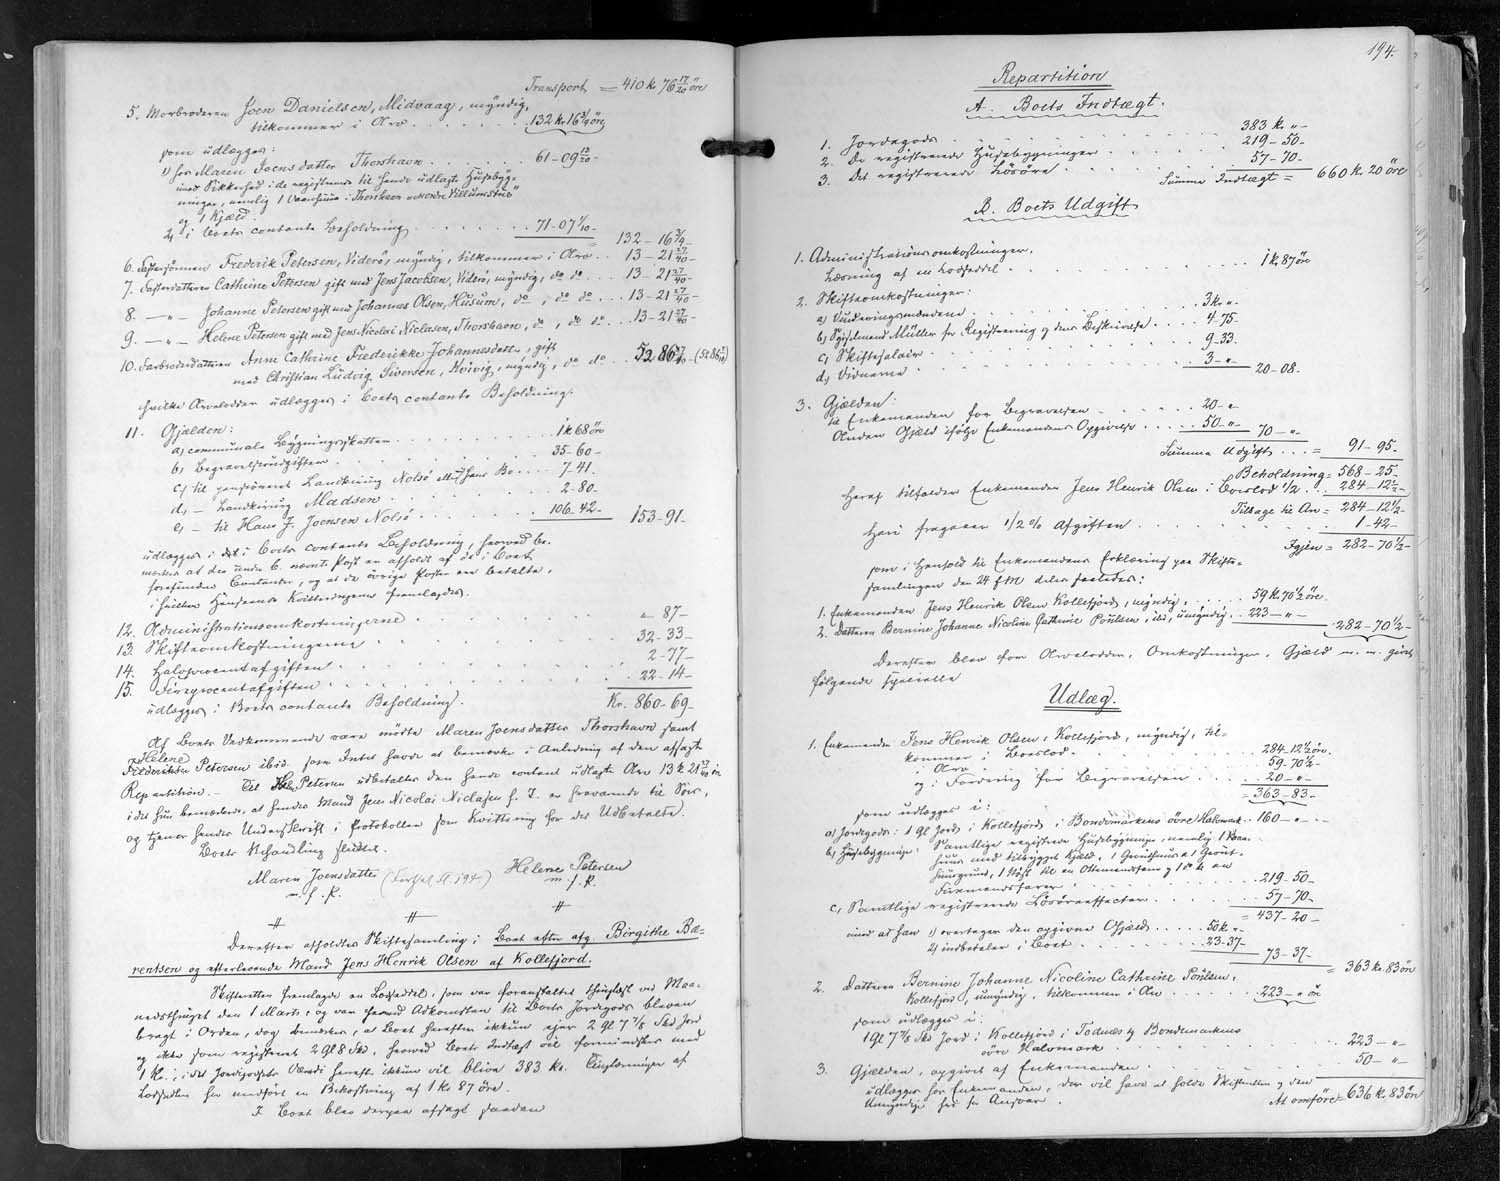 Transport = 410 k 76 17/20 öre
5. Morbroderen Joen Danielsen, Midvaag, myndig,
tilkommer i Arv . . . . . . . 132 kr 16 3/4 öre
som udlægges:
1) hos Maren Joensdatter Thorshavn . . . . . . 61-09 13/20-
mod Sikkerhed i de registrerede til hende udlagte Husebyg-
ninger, nemlig 1 Vaanhuus i Thorshavn
og 1 Kjeld.
2, i Boets contante Beholdning . . . . 71-07 1/10-
132-16 3/4-
6. Fastersönnen Frederik Petersen, Viderö, myndig, tilkommer i Arv . . 13-21 27/40-
7. Fasterdatteren Cathrine Petersen gift med Jens Jacobsen, Viderö, myndig, do do . . 13-21 27/40-
8. —"— Johanne Petersen gift med Johannes Olsen, Husum, do, do do . . . 13-21 27/40-
9. —"— Helene Petersen gift med Jens Nicolai Niclasen, Thorshavn, do, do do . . 13-21 27/40-
10. Farbroderdatteren Anne Cathrine Frederikke Johannesdatter, gift
med Christian Ludvig Sivertsen, Hvivig, myndig, do do . . 52 86 -
hvilke Arvelodder udlægges i Boets contante Beholdning.
11. Gjælden:
a) communale Bygningsskatten . . . . . . . . 1 k 68 öre
b) Begravelsesudgifter . . . . . . . . 35-60-
c) til pensioneret Landkirurg Nolsö eller hans Bo . . . 7-41.
d) - Landkirurg Madsen . . . . . . . 2-80.
e) - til Hans J. Joensen Nolsö . . . . . . 106-42-
153-91.
udlægges i det i Boets contante Beholdning, herved be-
mærkes at den under b. nævnte Post er afholdt af de i Boet
forefundne Contanter, og at de övrige Poster ere betalte,
i hvilken Henseende Kvitteringerne fremlagdes.
12. Administrationsomkostningerne . . . . . . " - 87-
13. Skifteomkostningerne . . . . . . 32-33-
14. Halvprocentafgiften . . . . . . 2-77-
15. Fireprocentafgiften . . . . . . 22-14-
udlægges i Boets contante Beholdning. Kr. 860-69-
Af Boets Vedkommende vare mödte Maren Joensdatter Thorshavn samt
Helene
Frederikke Petersen ibid. som Intet havde at bemærke i Anledning af den afsagte
Repartition. - Til Hel. Petersen udbetaltes den hende contant udlagte Arv 13 k 21 27/40 öre
idet hun bemærkede, at hendes Mand Jens Nicolai Niclasen f. T. er fraværende til Söes,
og tjener hendes Underskrift i Protokollen som Kvittering for det Udbetalte.
Boets Behandling sluttet.
Maren Joensdatter (Fortsat fl. 194) Helene Petersen
m. f. P. m. f. P.
# # #
Derefter afholdtes Skiftesamling i Boet efter afg. Birgithe Bæ-
rentsen og efterlevende Mand Jens Henrik Olsen af Kollefjord.
Skifteretten fremlagde en Lodseddel, som var foranstaltet thinglæst ved Maa-
nedsthinget den 1 Marts, og var herved Adkomsten til Boets Jordegods bleven
bragt i Orden, dog bemærkes, at Boet herefter ikkun ejer 2 Gl 7 7/8 Skd Jord
og ikke som registreret 2 Gl 8 Skd, herved Boets Indtægt vil formindskes med
1 Kr., idet Jordegodsets Værdi herefter ikkun vil blive 383 kr. Thinglæsningen af
Lodsedlen har medfört en Bekostning af 1 kr 87 öre.
I Boet blev derpaa afsagt saadan
194.
Repartition
A. Boets Indtægt.
1. Jordegods . . . . . . . . 383 kr. "-
2. De registrerede Husebygninger . . . . . 219-50-
3. Det registrerede Lösöre . . . . . 57-70-
Summa Indtægt = 660 k. 20 öre
B. Boets Udgift
1. Administrationsomkostninger.
Læsning af en Lodseddel . . . . . . . 1 k. 87 öre
2. Skifteomkostninger:
a) Vurderingsmændene . . . . . . . 3 kr ".
b) Sysselmand Müller for Registrering og dens Beskrivelse . . . . 4-75.
c) Skiftesalair . . . . . . . . 9-33.
d) Vidnerne . . . . . . . . 3-"-
20-08-
3. Gjælden:
til Enkemanden for Begravelsen . . . . . . 20-"
Anden Gjæld ifölge Enkemandens Opgivelse . . . . . 50-"-
70-"-
Summa Udgift . . . = 91-95-
Beholdning = 568-25-
Heraf tilfalder Enkemanden Jens Henrik Olsen i Boeslod 1/2 . . . 284-12 1/2-
Tilbage til Arv = 284-12 1/2-
Heri fragaaer 1/2 % Afgiften . . . . . . . . 1-42-
Igjen = 282-70 1/2-
som i Henhold til Enkemandens Erklæring paa Skifte-
samlingen den 24 f.M. deles saaledes:
1. Enkemanden Jens Henrik Olsen Kollefjord, myndig, . . . . . 59 k. 70 1/2 öre.
2. Datteren Bernine Johanne Nicoline Cathrine Poülsen, ibd, umyndig . . 223-"-
282-70 1/2-
Derefter blev for Arvelodder, Omkostninger, Gjæld m. m. gjort
fölgende specielle
Udlæg.
1. Enkemanden Jens Henrik Olsen, Kollefjord, myndig, til-
kommer i Boeslod . . . . . . . . 284-12 1/2 öre.
i Arv . . . . . . . . 59-70 1/2-
og i Fordring for Begravelsen . . . . . 20-"-
= 363-83-
som udlægges i:
a) Jordegods: 1 Gl Jord i Kollefjord i Bondemarkens övre Halvmark . . 160-"-
b) Husebygninger: Samtlige registrerede Husebygninger, nemlig 1 Vaan-
huus med tilbygget Kjeld, 1 Grouthuus
. . . . . . . 219-50-
c) Samtlige registrerede Lösöreeffecter . . . . . 57-70-
= 437-20-
imod at han 1) overtager den opgivne Gjæld . . . . 50 k "-
2) indbetaler i Boet . . . . . 23-37-
73-37-
= 363 kr. 83 öre
2. Datteren Bernine Johanne Nicoline Cathrine Poülsen,
Kollefjord, umyndig, tilkommer i Arv . . . . . 223-" öre
som udlægges i:
1 Gl 7 7/8 Skd Jord i Kollefjord i Bondemarkens
övre Halvmark . . . . . . . . . 223-"-
3. Gjælden, opgivet af Enkemanden . . . . . . . 50-"-
udlægges hos Enkemanden, der vil have at holde Skifteretten og den
Umyndige fri for Ansvar.
At overföre = 636 k. 83 öre